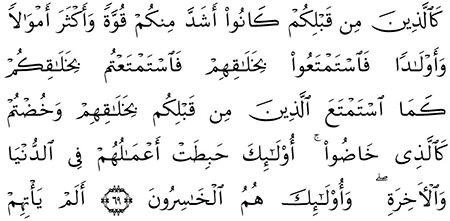 كَٱلَّذِينَ مِن قَبۡلِكُمۡ كَانُوٓاْ أَشَدَّ مِنكُمۡ قُوَّةٗ وَأَكۡثَرَ أَمۡوَٰلٗا
وَأَوۡلَٰدٗا فَٱسۡتَمۡتَعُواْ بِخَلَٰقِهِمۡ فَٱسۡتَمۡتَعۡتُم بِخَلَٰقِكُمۡ
كَمَا ٱسۡتَمۡتَعَ ٱلَّذِينَ مِن قَبۡلِكُم بِخَلَٰقِهِمۡ وَخُضۡتُمۡ
كَٱلَّذِي خَاضُوٓاْۚ أُوْلَٰٓئِكَ حَبِطَتۡ أَعۡمَٰلُهُمۡ فِي ٱلدُّنۡيَا
وَٱلۡأٓخِرَةِۖ وَأُوْلَٰٓئِكَ هُمُ ٱلۡخَٰسِرُونَ ۝٦٩ أَلَمۡ يَأۡتِهِمۡ